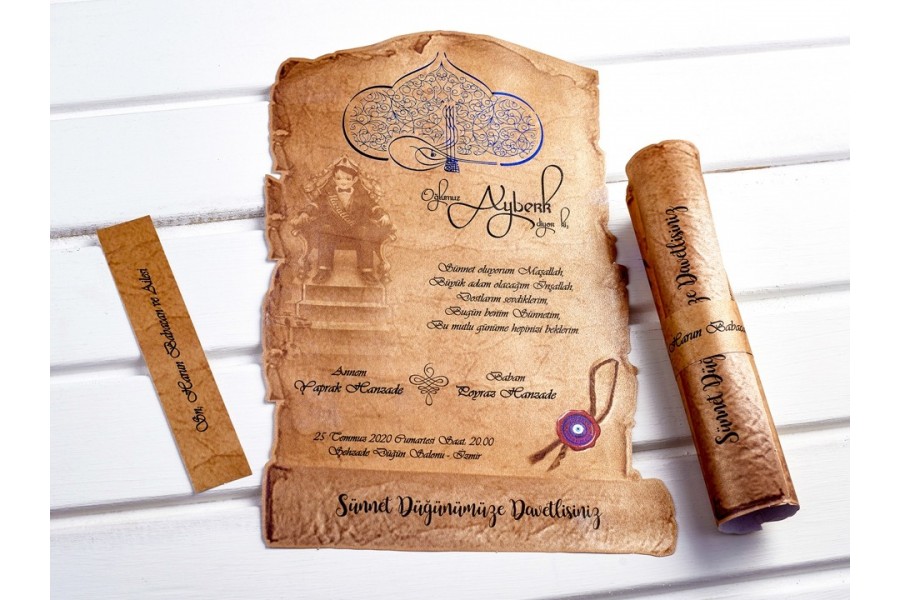 Oğlumuz
Ayberk
diyor ki,
Sünnet oluyorum Maşallah,
Büyük adam olacağım İnşallah,
Dostlarım sevdiklerim,
Bugün benim Sünnetim,
Bu mutlu günüme hepinizi beklerim.
Annem
Yaprak Hanzade
Babam
Poyraz Hanzade
25 Temmuz 2020 Cumartesi Saat. 20.00
Şehzade Düğün Salonu - İzmir
Sünnet Düğünümüze Davetlisiniz
Sn. Harun Babacan ve Ailesi
Sünnet Düğ
ze Davetlisiniz
Harun Babacan